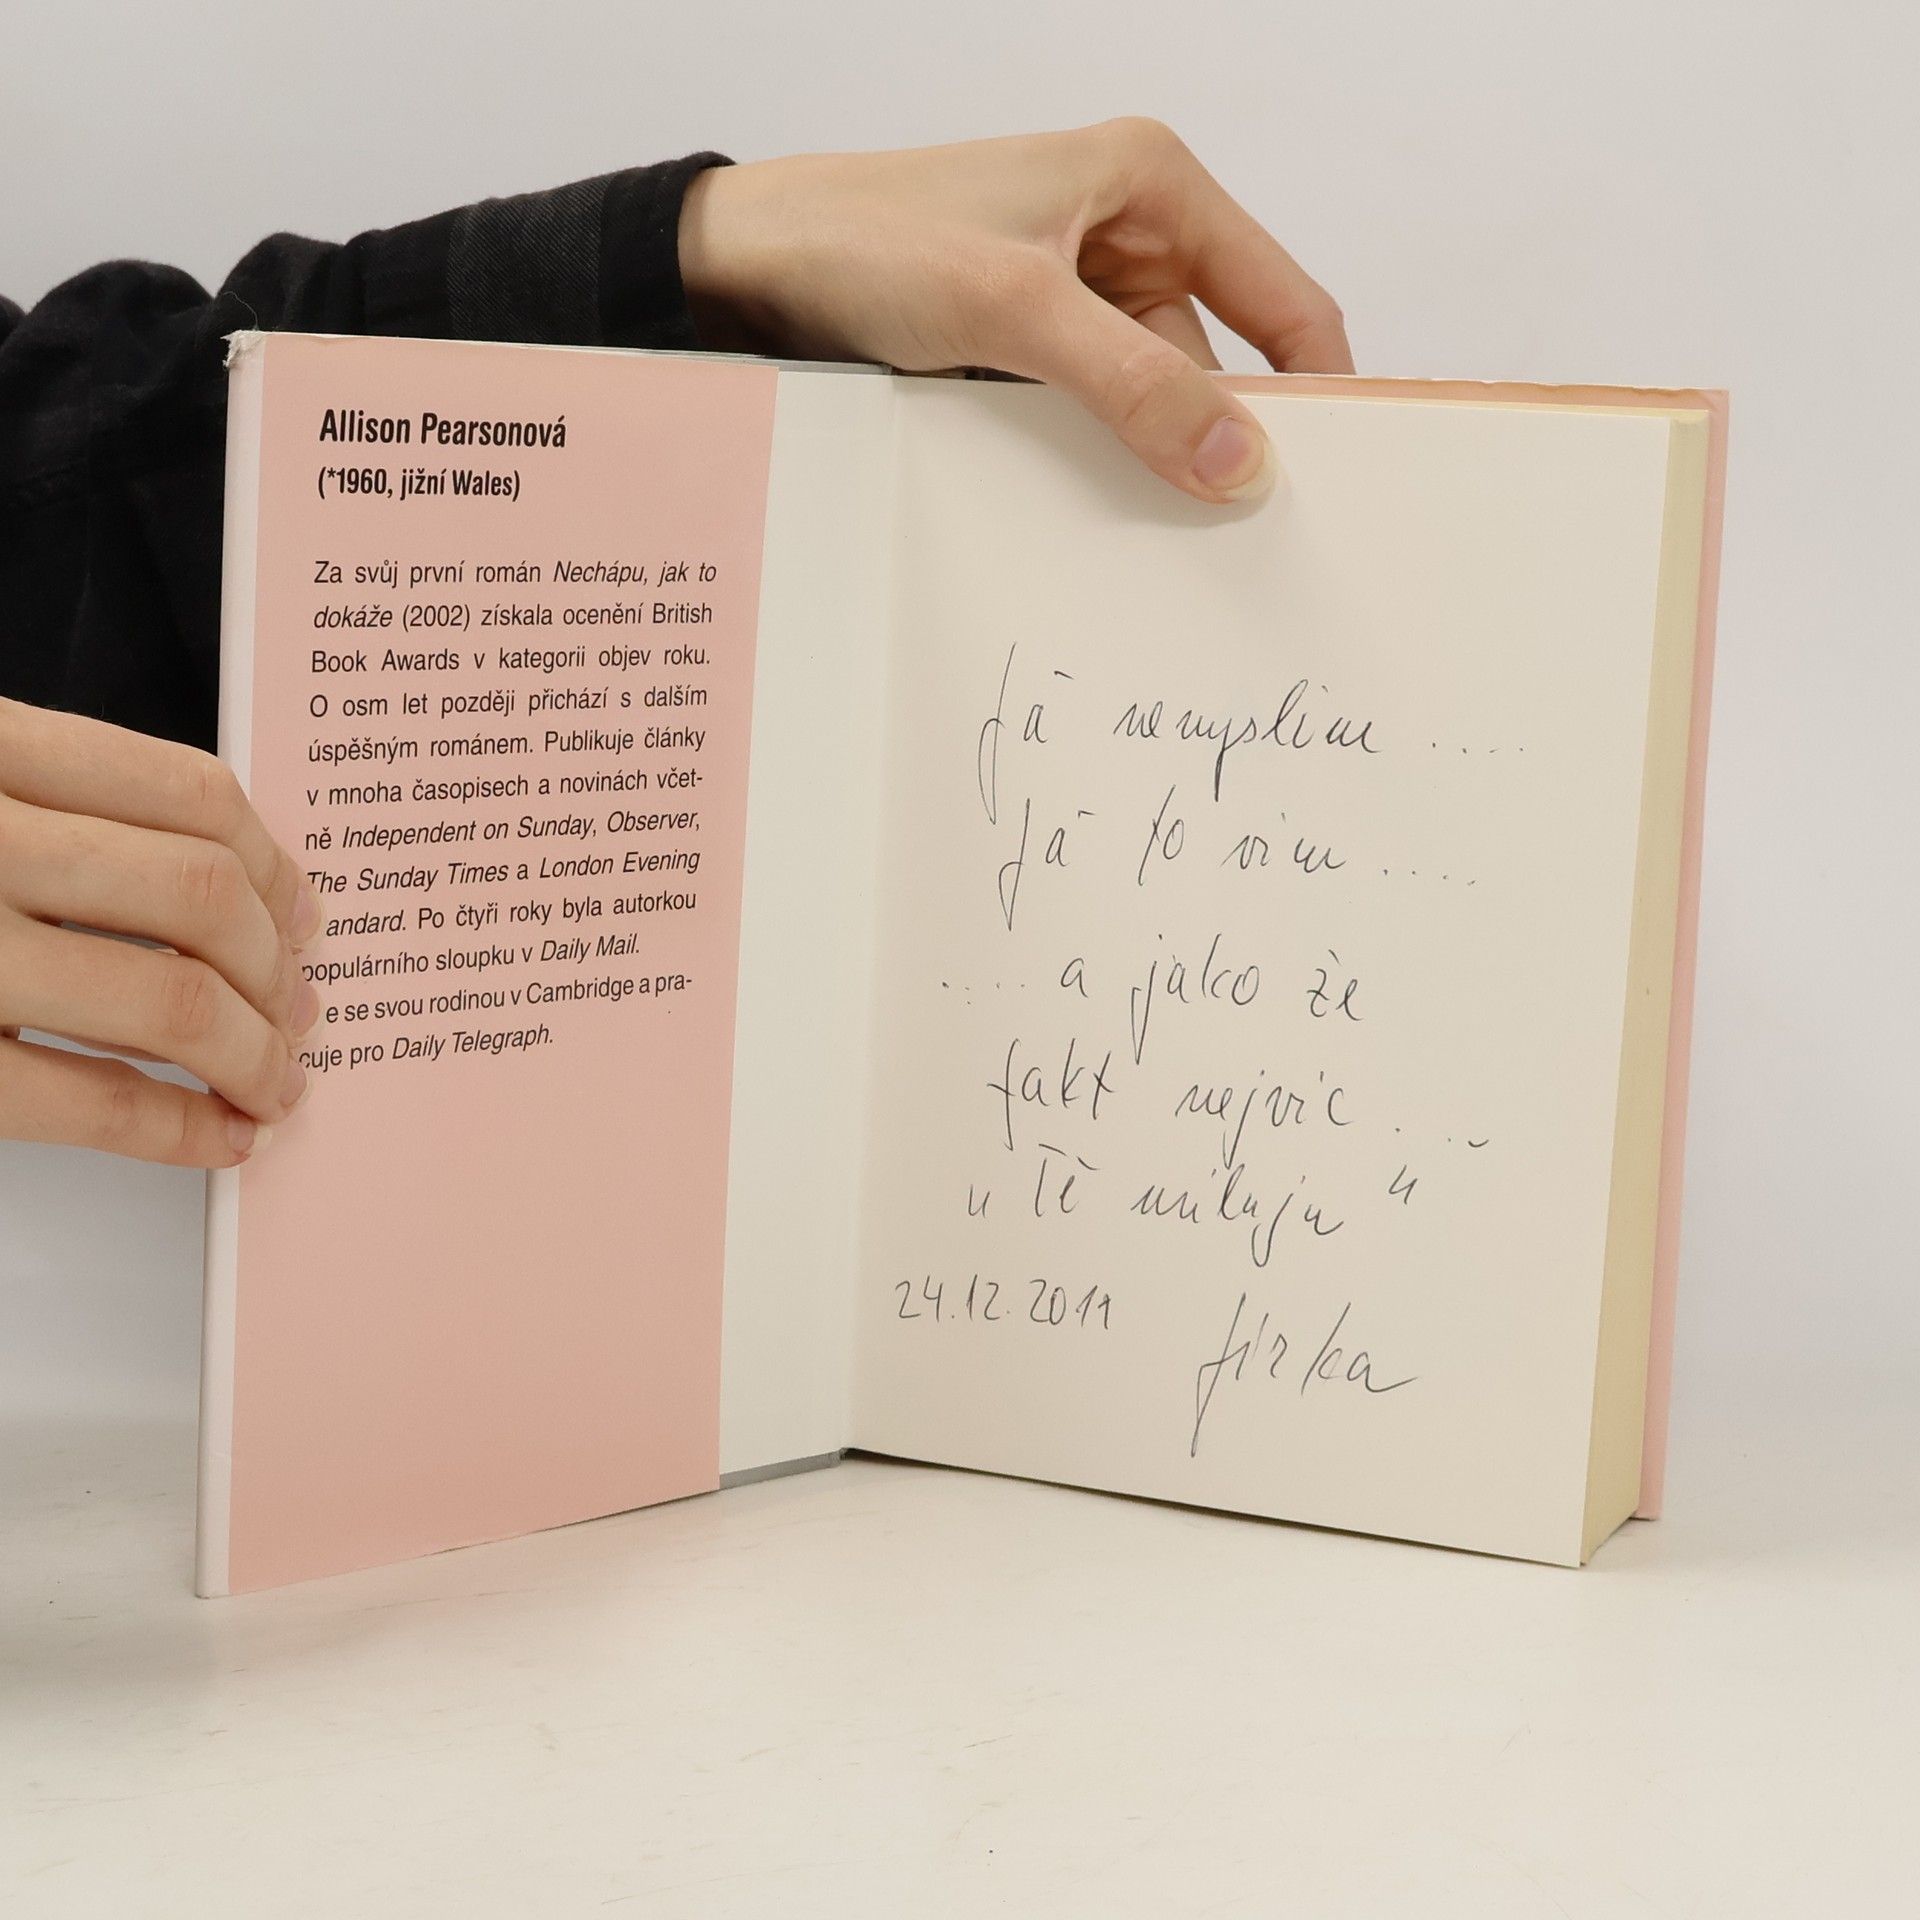 Allison Pearsonová
(*1960, jižní Wales)
Za svůj první román Nechápu, jak to
dokáže (2002) získala ocenění British
Book Awards v kategorii objev roku.
O osm let později přichází s dalším
úspěšným románem. Publikuje články
v mnoha časopisech a novinách včet-
ně Independent on Sunday, Observer,
The Sunday Times a London Evening
andard. Po čtyři roky byla autorkou
populárního sloupku v Daily Mail.
e se svou rodinou v Cambridge a pra-
cuje pro Daily Telegraph.
Já nemyslím ....
Já to vím ....
.... a jako že
fakt nejvíc ...
" Tě miluju "
24.12.2011
Jirka